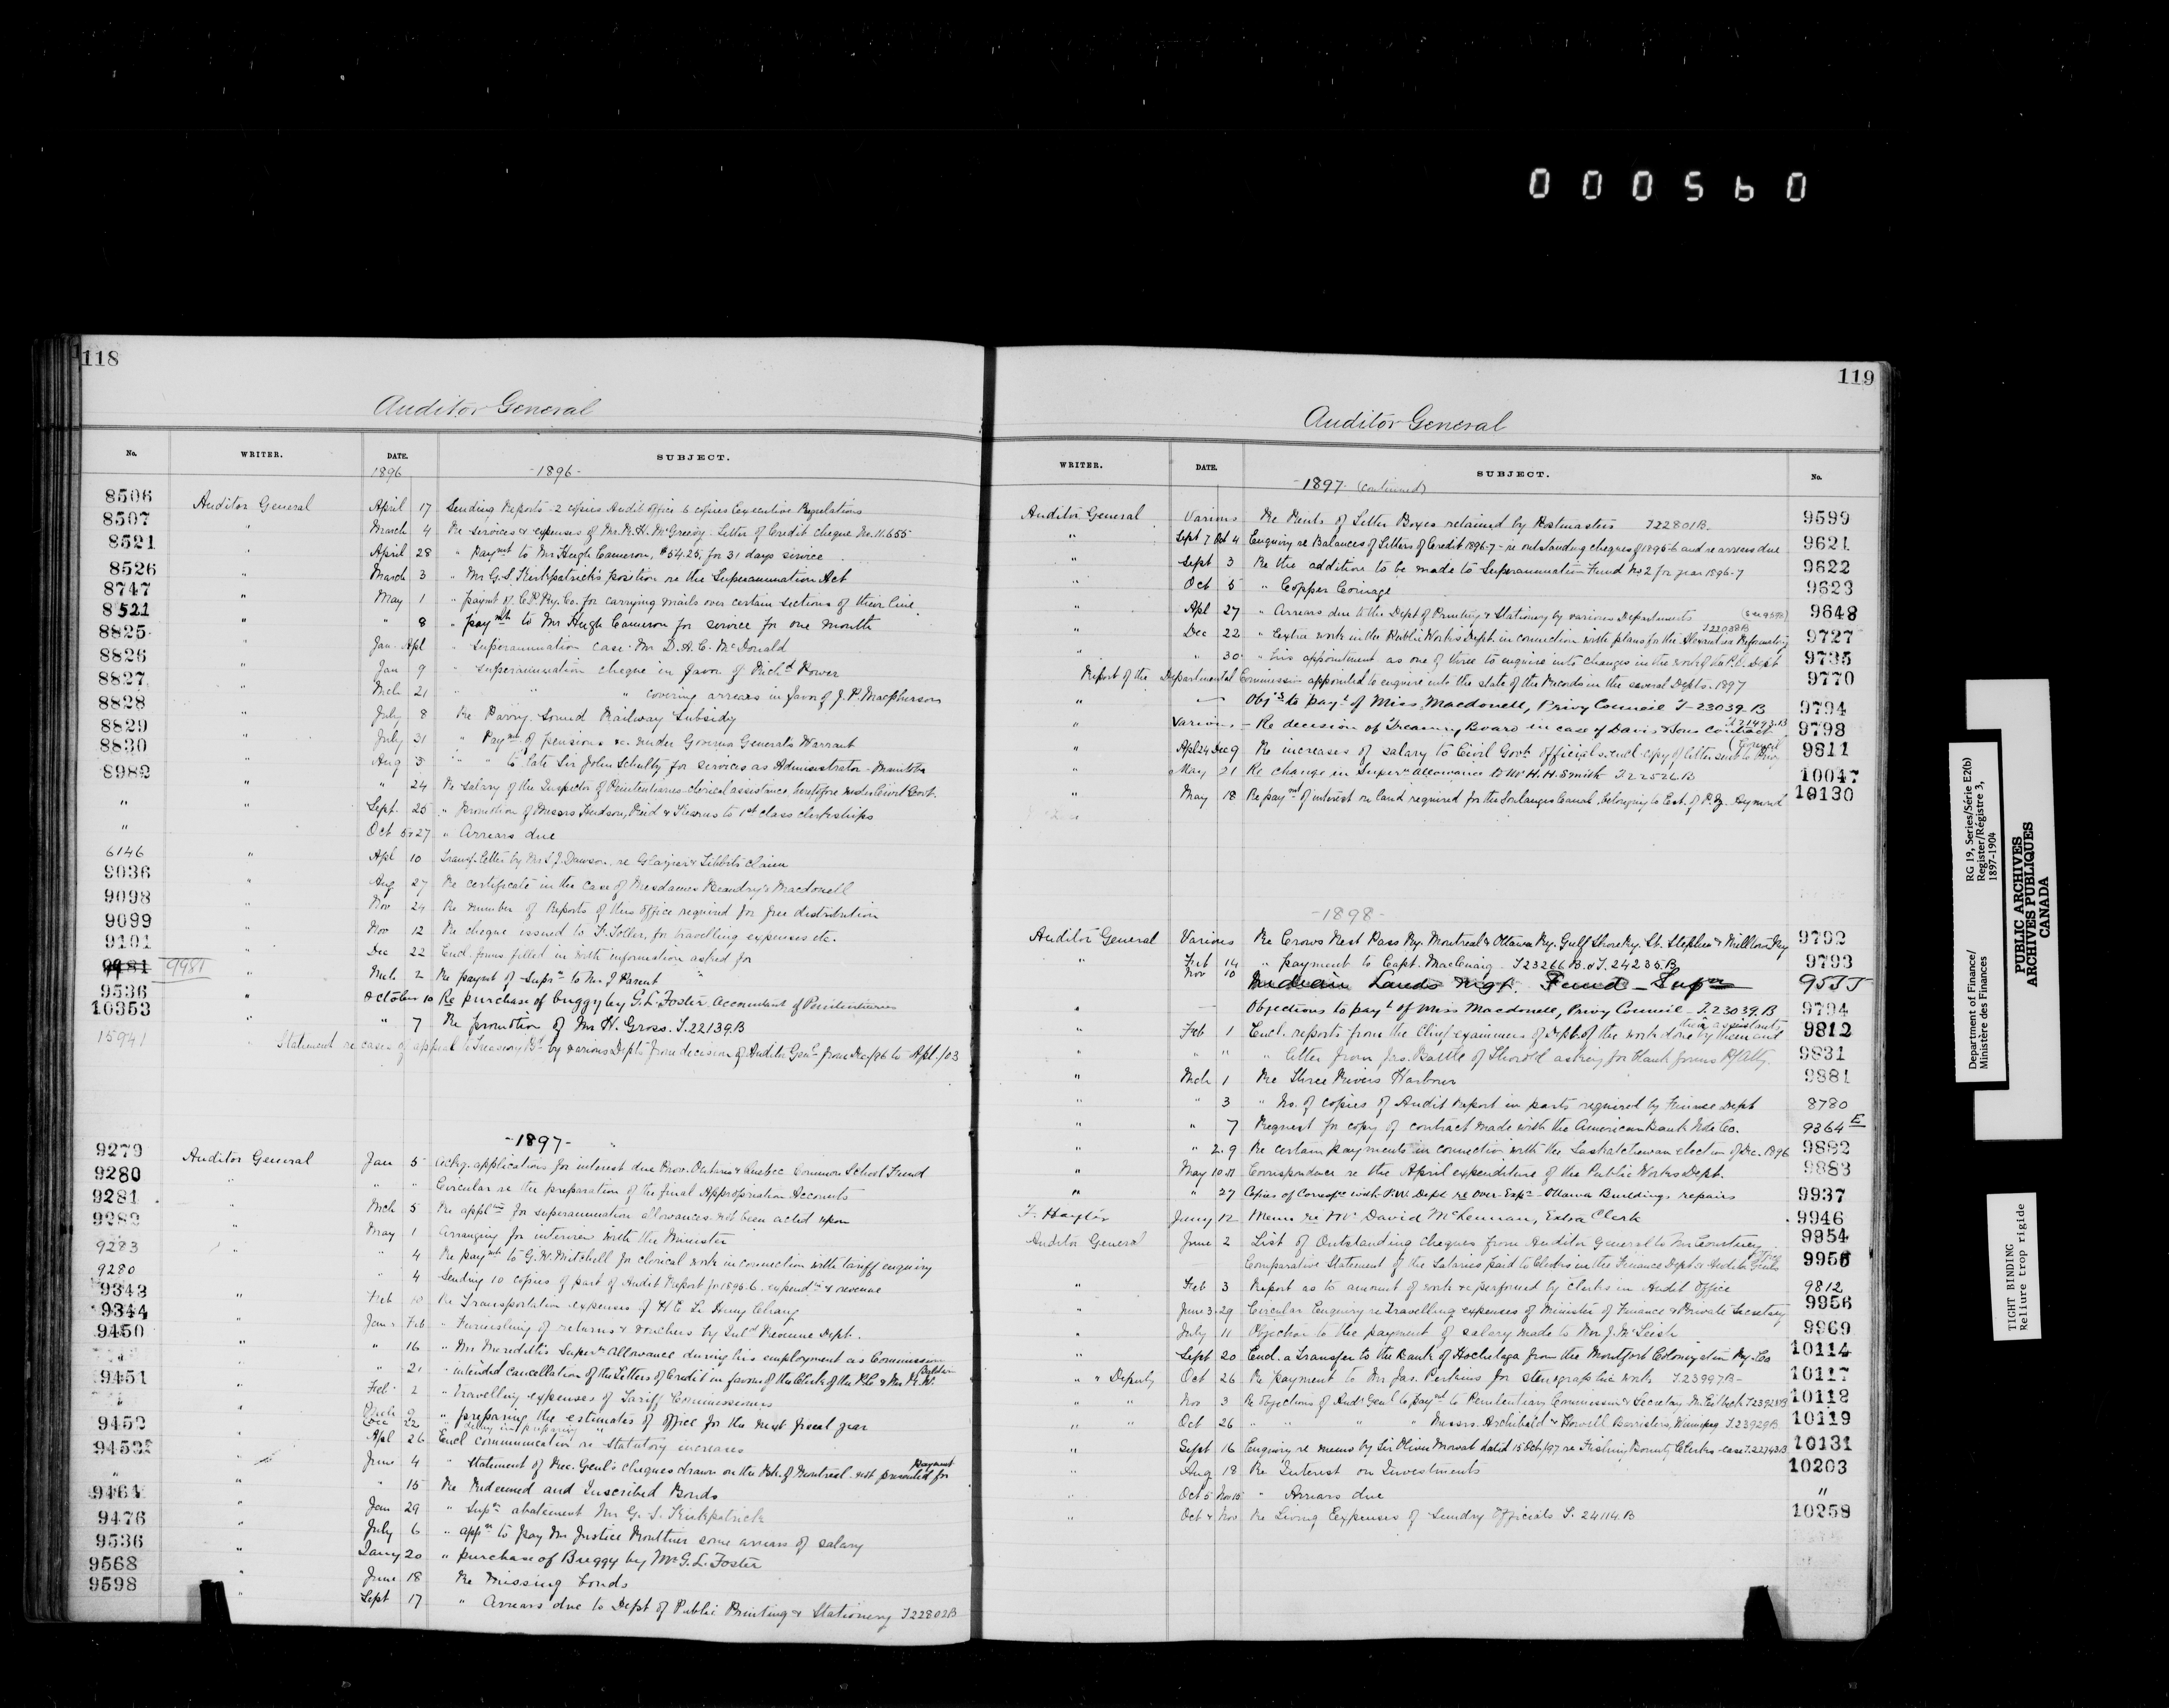 000560
118
Auditor General
No. WRITER. DATE. SUBJECT.
1896 -1896-
8506 Auditor General April 17 Sending Reports - 2 copies Audit office 6 copies Executive Regulations
8507 " March 4 Re services & expenses of Mr. R. H. McGreevy - Letter of Credit cheque No. 11.655
8521 " April 28 " Paymnt to Mr Hugh Cameron, $54.25, for 31 days service
8526 " March 3 " Mr G. S. Kirkpatrick's position re the Superannuation Act
8747 " May 1 " paymt of C.P. Ry. Co. for carrying mails over certain sections of their line
8521 " " 8 " paymnt to Mr Hugh Cameron for service for one month
8825 " Jan - Apl " Superannuation case Mr D. A. C. McDonald
8826 " Jan 9 " Superannuation cheque in favor of Richd Power
8827 " Mch 21 " " " covering arrears in favor of J. P. Macpherson
8828 " July 8 Re Parry Sound Railway Subsidy
8829 " July 31 " Paymnt of pensions &c. under Governor Generals Warrant
8830 " Aug 3 " " to late Sir John Schultz for services as Administrator - Manitoba
8982 " " 24 Re salary of the Inspector of Penitentiaries clerical assistance, heretofore under Civil Govt.
" " Sept. 25 " Promotion of Messrs Hudson, Reid & Stearns to 1st class clerkships
" Oct 5 & 27 " Arrears due
6146 " Apl 10 Transf. letter by Mr S. J. Dawson, re Glazier & Tibbits claim
9036 " Aug 27 Re certificate in the case of Mesdames Beaudry & Macdonell
9098 " Nov 24 Re number of Reports of this office required for free distribution
9099 " Nov 12 Re cheque issued to F. Toller, for travelling expenses etc.
9101 " Dec 22 Encl. forms filled in with information asked for
9981 9981 " Mch 2 Re paymt of Supn to Mr J Parent
9536 " October 10 Re purchase of buggy by G. L. Foster Accountant of Penitentiaries
10353 " " 7 Re promotion of Mr H. Gross. T. 22139.B
15941 Statement re cases of appeal to Treasury Bd by various Depts from decision of Auditor Genl from Dec/96 to Apl./03
-1897-
9279 Auditor General Jan 5 Ackg. applications for interest due Prov. Ontario & Quebec Common School Fund
9280 " " " Circular re the preparation of the final Appropriation Accounts
9281 " Mch 5 Re applns for superannuation allowances not been acted upon
9282 " May 1 Arranging for interview with the Minister
9283 " " 4 Re paymnt to G. W. Mitchell for clerical work in connection with tariff enquiry
9280 " 4 Sending 10 copies of part of Audit Report for 1895-6 - expendre & revenue
9343 " Feb 10 Re Transportation expenses of H. E. Li Hung Chang
9344 " Jan & Feb " Furnishing of returns & vouchers by Inld Revenue Dept.
9450 " " 16 " Mr Meredith's Supern Allowance during his employment as Commission
" " 21 " intended cancellation of the Letters of Credit in favour of the Clerk of the P.C. & Mr R. W.
9451 " Feb 2 " Travelling expenses of Tariff Commissioners
" " preparing the estimates of office for the next fiscal year
9452 " Dec 22
9453 " Apl 26 Encl communication re Statutory increases
" " June 4 " Statement of Rec. Genl's cheques drawn on the Bk. of Montreal not presented for payment
" 15 Re Redeemed and Inscribed Bonds
9464 " Jan 29 " Supn abatement Mr G. S. Kirkpatrick
9476 " July 6 " appn to pay Mr Justice Routhier some arrears of salary
9536 " Jany 20 " purchase of Buggy by Mr G. L. Foster
9568 " June 18 Re Missing bonds
9598 " Sept 17 " Arrears due to Dept of Public Printing & Stationery T22802B
119
Auditor General
WRITER. DATE. SUBJECT. No.
-1897- (continued)
Auditor General Various Re Rents of Letter Boxes retained by Postmasters T22801B. 9599
" Sept 7 Oct 4 Enquiry re Balances of Letters of Credit 1896-7 - re outstanding cheques of 1895-6 and re arrears due 9621
" Sept 3 Re the addition to be made to Superannuation Fund No 2 for year 1896-7 9622
" Oct 5 " Copper Coinage 9623
" Apl 27 " Arrears due to the Dept of Printing & Stationery by various Departments 9648
" Dec 22 " Extra work in the Public Works Dept. in connection with plans for the Alexandria Reformatory T22038B 9727
" " 30 " his appointment as one of three to enquire into changes in the work of the P.O. Dept 9735
Report of the Departmental Commission appointed to enquire into the state of the Records in the several Depts. 1897 9770
" — Objns to payt of Miss Macdonell, Privy Council T-23039.B 9794
" Various - Re decision of Treasury Board in case of Davis & Sons Contract T21493B 9798
" Apl 24 Dec 9 Re increases of salary to Civil Govt officials, encl. copy of letter sent to Privy (Council 9811
" May 21 Re change in Supern allowance to Mr H. H. Smith T22526B 10047
" May 18 Re paymnt of interest on land required for the Soulanges Canal, belonging to Est. of P. Z. Raymond 10130
-1898-
Auditor General Various Re Crows Nest Pass Ry. Montreal & Ottawa Ry. Gulf Shore Ry. St. Stephen & Milltown Ry 9792
" Feb 14 " payment to Capt. MacCuaig T23266B. & T. 24235.B 9793
Nov 10 Indian Lands Mgt. Fund - Supn 9555
" — Objections to payt of Miss Macdonell, Privy Council - T.23039.B 9794
" Feb 1 Encl. reports from the Chief examiners of Depts. of the work done by them and their assistants 9812
" " " " letter from Jas. Battle of Thorold asking for blank forms P/Atty. 9831
" Mch 1 Re Three Rivers Harbour 9881
" " 3 " No. of copies of Audit Report in parts required by Finance Dept 8780
" " 7 Request for copy of contract made with the American Bank Note Co. 9364 E
" " 2.9 Re certain payments in connection with the Saskatchewan election of Dec. 1896 9882
" May 10 Correspondence re the April expenditure of the Public Works Dept. 9883
" " 27 Copies of Correspce with P.W. Dept re Over-Expre Ottawa Buildings repairs 9937
Jany 12 Memo re Mr David McLennan, Extra Clerk 9946
Auditor General June 2 List of Outstanding cheques from Auditor General to Mr Courtney 9954
Comparative Statement of the Salaries paid to Clerks in the Finance Dept & Audit Genls Office 9955
" Feb 3 Report as to amount of work &c performed by clerks in Audit Office 9812
" June 3.29 Circular Enquiry re Travelling expenses of Minister of Finance & Private Secretary 9956
" July 11 Objection to the payment of salary made to Mr J. McLeish 9969
" Sept 20 Encl. a Transfer to the Bank of Hochelaga from the Montfort Colonization Ry. Co 10114
" " Deputy Oct 26 Re payment to Mr Jas. Perkins for stenographic work T23997B- 10117
" " Nov 3 Re objections of Audr Genl to paymt to Penitentiary Commissn & Secretary T23928B 10118
" " Oct 26 " " " " Messrs. Archibald & Howell Barristers, Winnipeg T.23929B 10119
" Sept 16 Enquiry re memo by Sir Oliver Mowat dated 15 Oct/97 re Fishing Bounty Clerks - case T.22743B 10131
" Aug 18 Re Interest on Investments 10203
" Oct 5 Nov 15 " Arrears due "
" Oct & Nov Re Living Expenses of Sundry Officials T. 24114.B 10258
Department of Finance/
Ministère des Finances
RG 19, Series/Série E2(b)
Register/Régistre 3,
1897-1904
PUBLIC ARCHIVES
ARCHIVES PUBLIQUES
CANADA
TIGHT BINDING
Reliure trop rigide